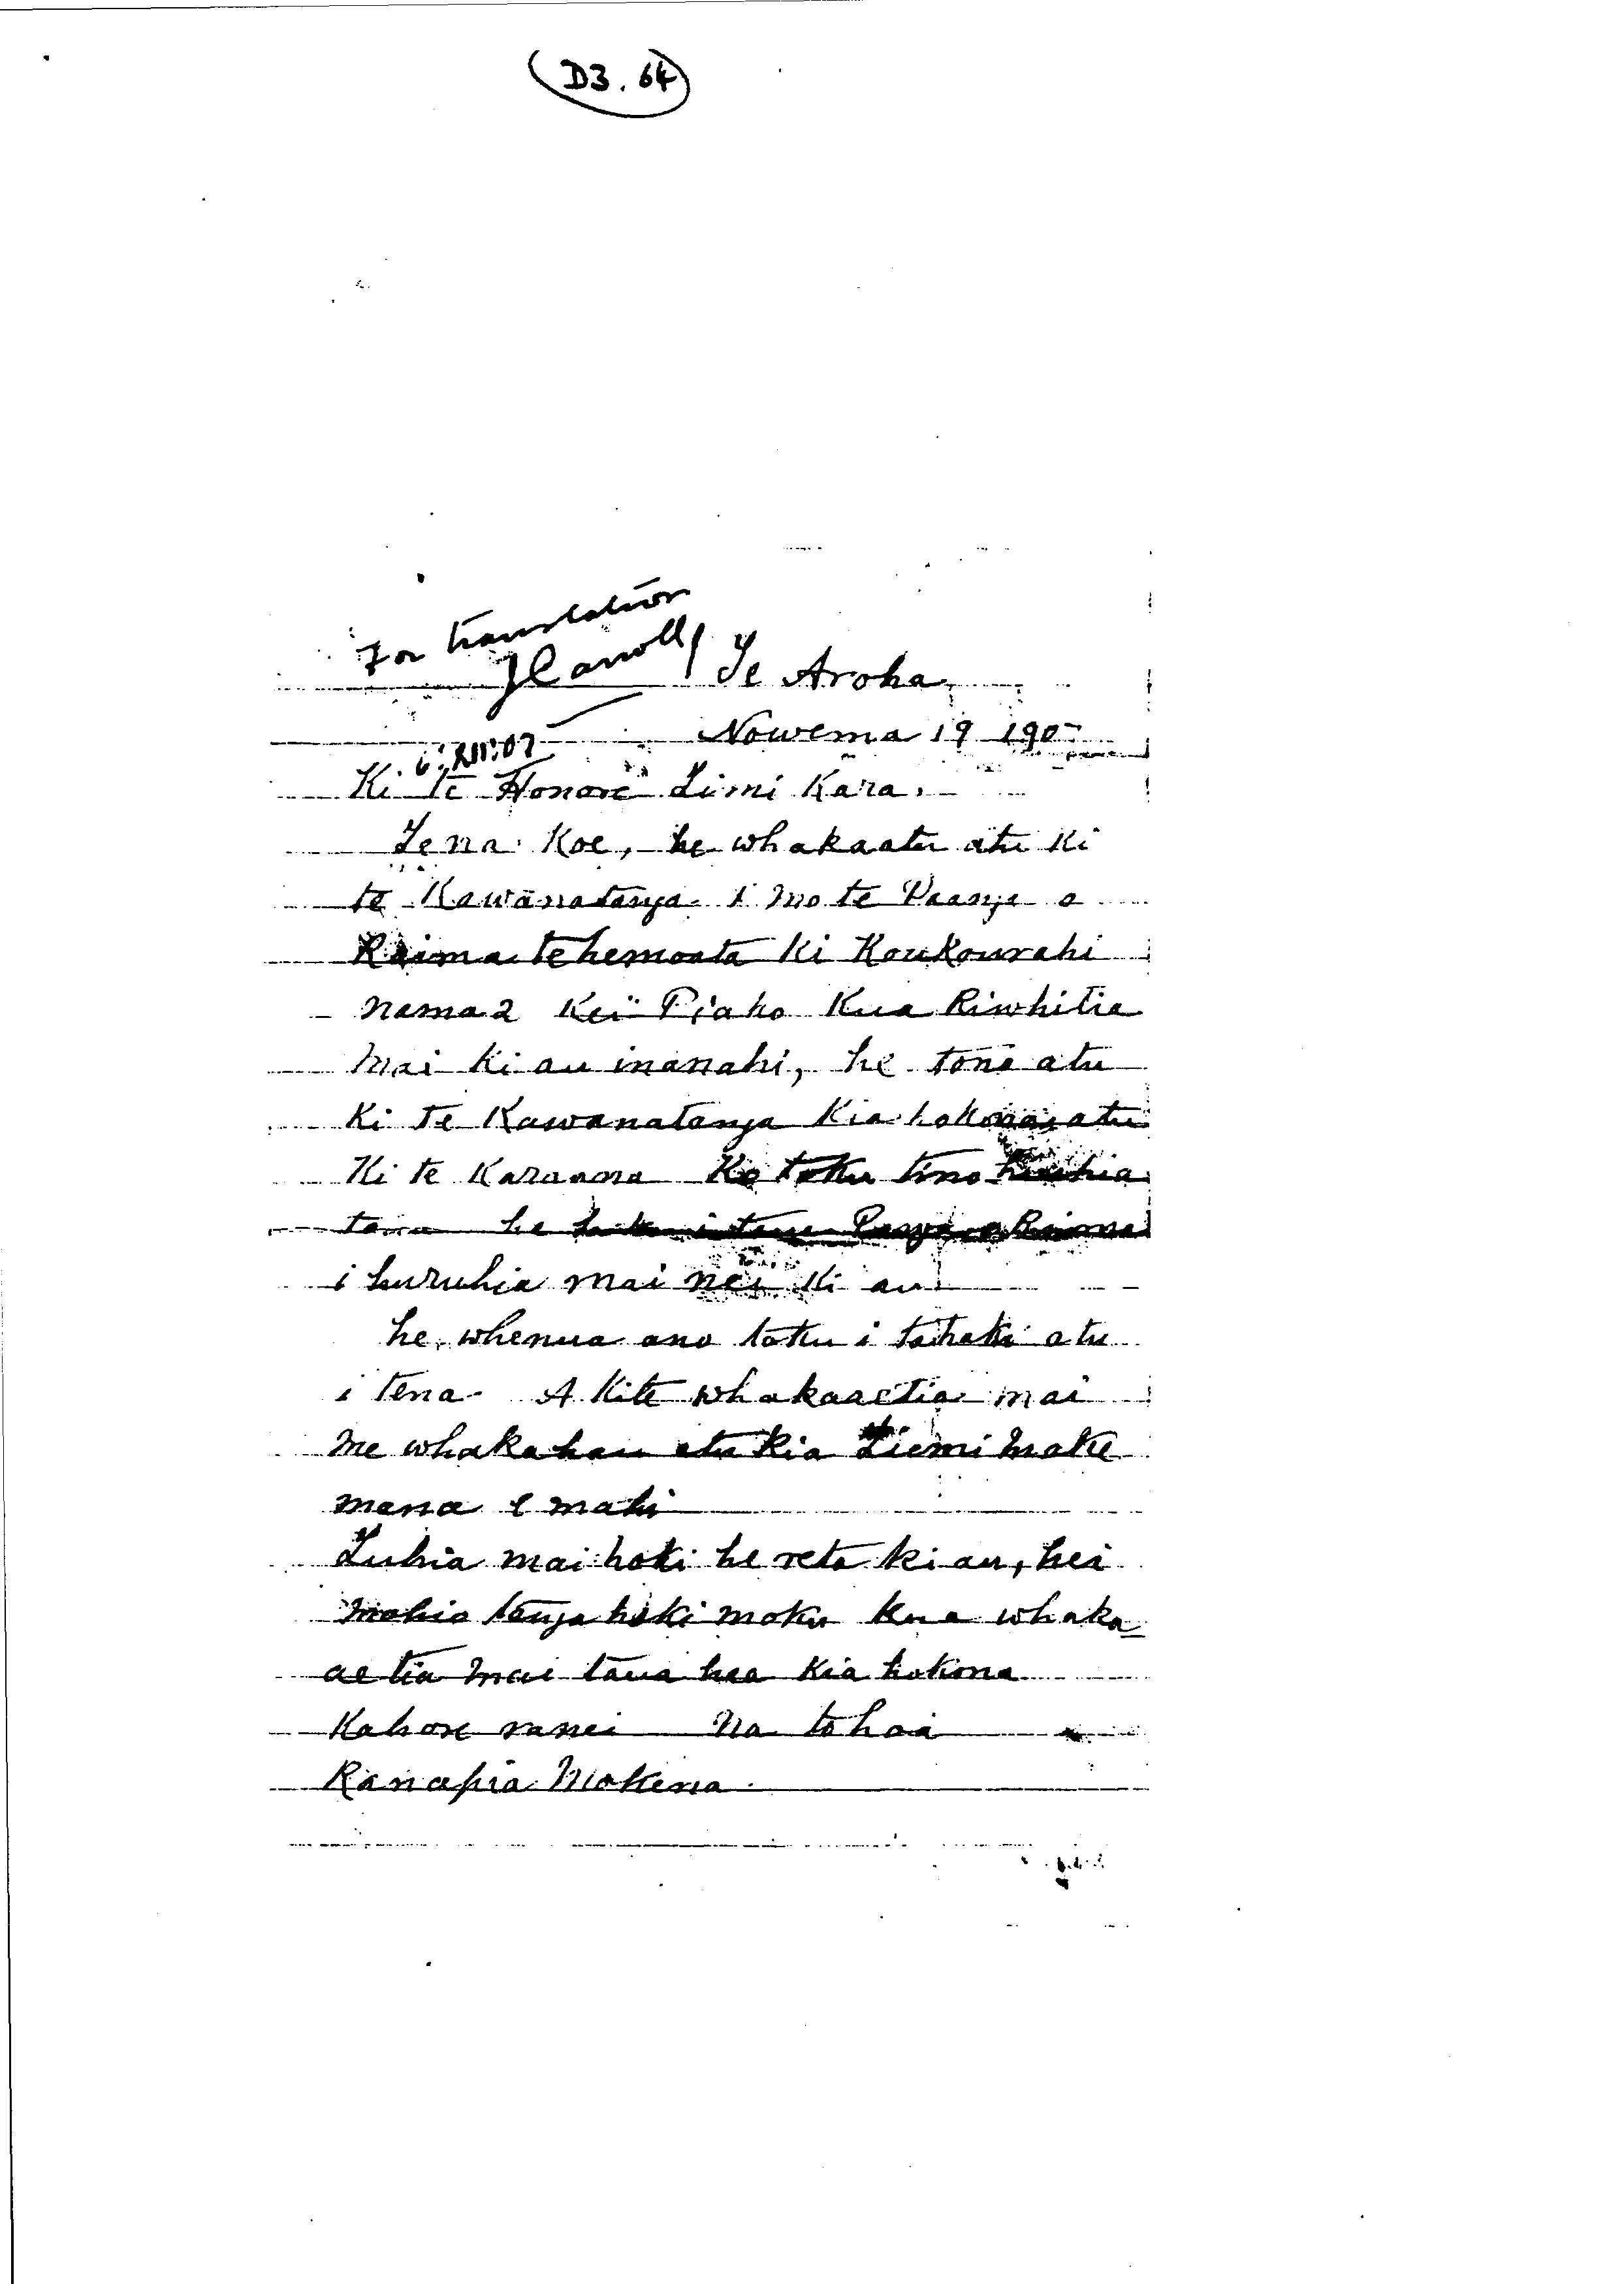 D3.64
For translation
JCarroll
Te Aroha,
Nowema 19 190
6.XII.07
Ki te Honore Timi Kara.
Tena Koe, he whakaatu atu ki
te Kawanatanga i mo te Paanga o
Raima te hemoata ki Koukourahi
nama 2 kei Piako kua Riwhitia
mai ki au inanahi, he tono atu
ki te Kawanatanga kia hokona atu
Ki te Karauna Ko toku tino hiahia
tera he i taua Paanga o Raima
i hurihia mai nei ki au
he whenua ano toku i tahaki atu
i tena. A kite whakaaetia mai
me whakahau atu kia Tiemi Make
mana e mahi
Tuhia mai hoki he reta ki au, hei
mohiotanga hoki moku kua whaka
aetia mai taua hea kia hokona
Kahore ranei Na to hoa
Ranapia Mokena